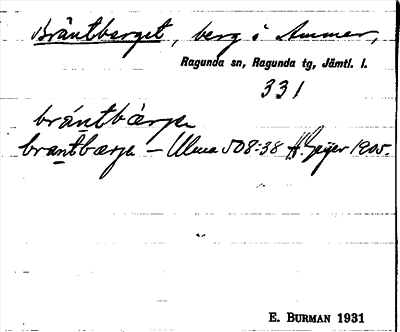 Bräntberget, berg i Ammer,
Ragunda sn, Ragunda tg, Jämtl. l.
331
bräntbàrjɛ
brantbærje – Ulma 508:38 H. Geijer 1905.
E. BURMAN 1931